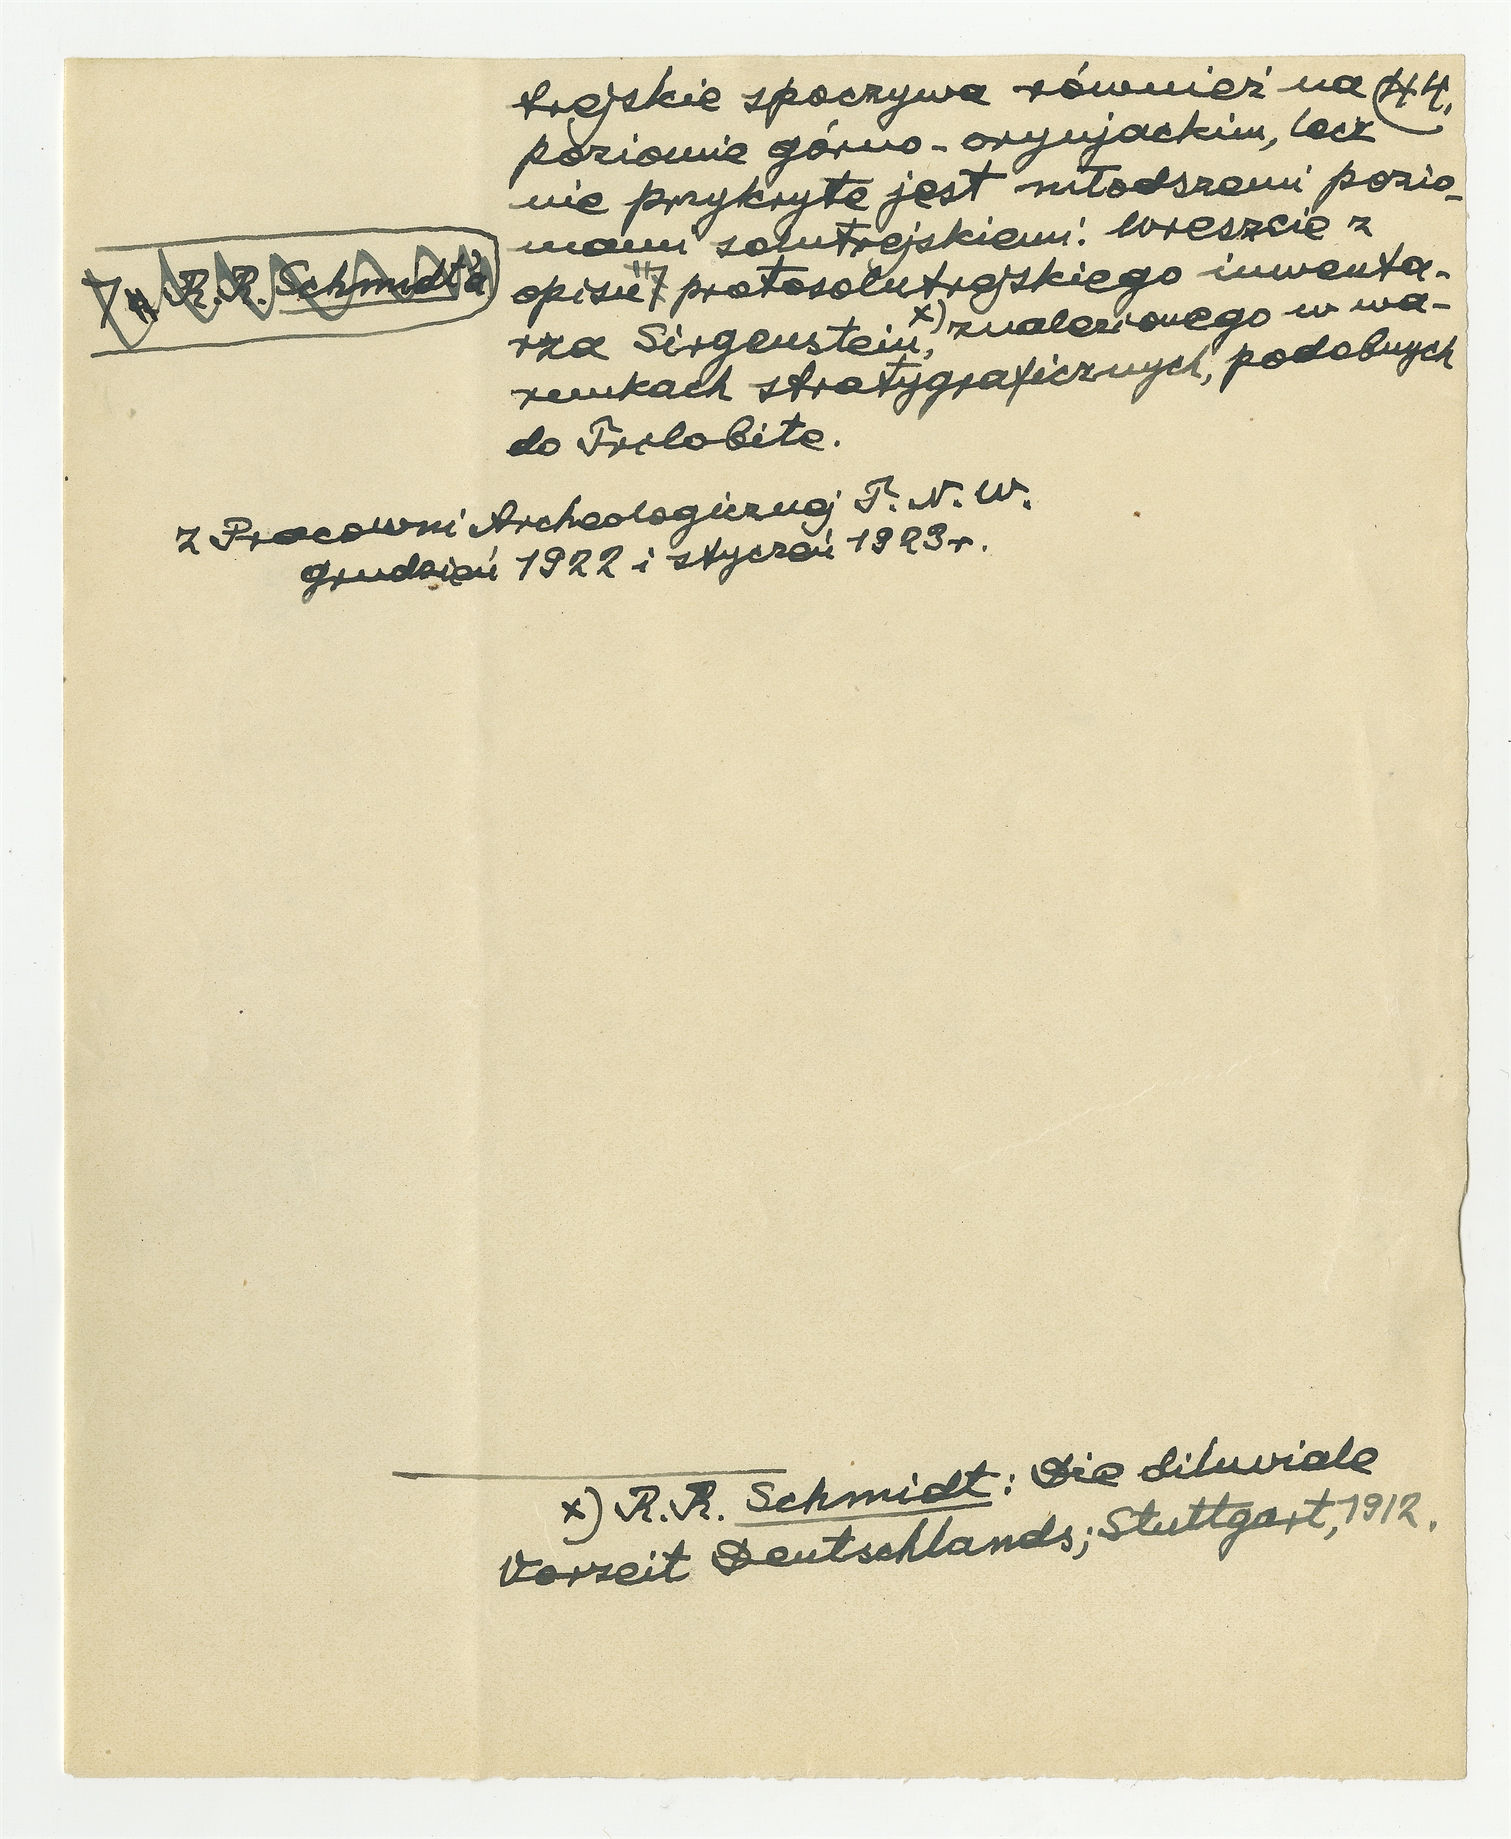 trejskie spoczywa również na 44.
poziomie górno-oryniackim, lecz
nie przykryte jest młodszemi pozio-
mami solutrejskiemi. Wreszcie z
opisu protosolutrejskiego inwenta-
R. R. Schmidt'a
rza Sirgenstein,x) znalezionego w wa-
runkach stratygraficznych, podobnych
do Trilobite.
Z Pracowni Archeologicznej T. N. W.
grudzień 1922 i styczeń 1923 r.
x) R. R. Schmidt: Die diluviale
Vorzeit Deutschlands; Stuttgart, 1912.